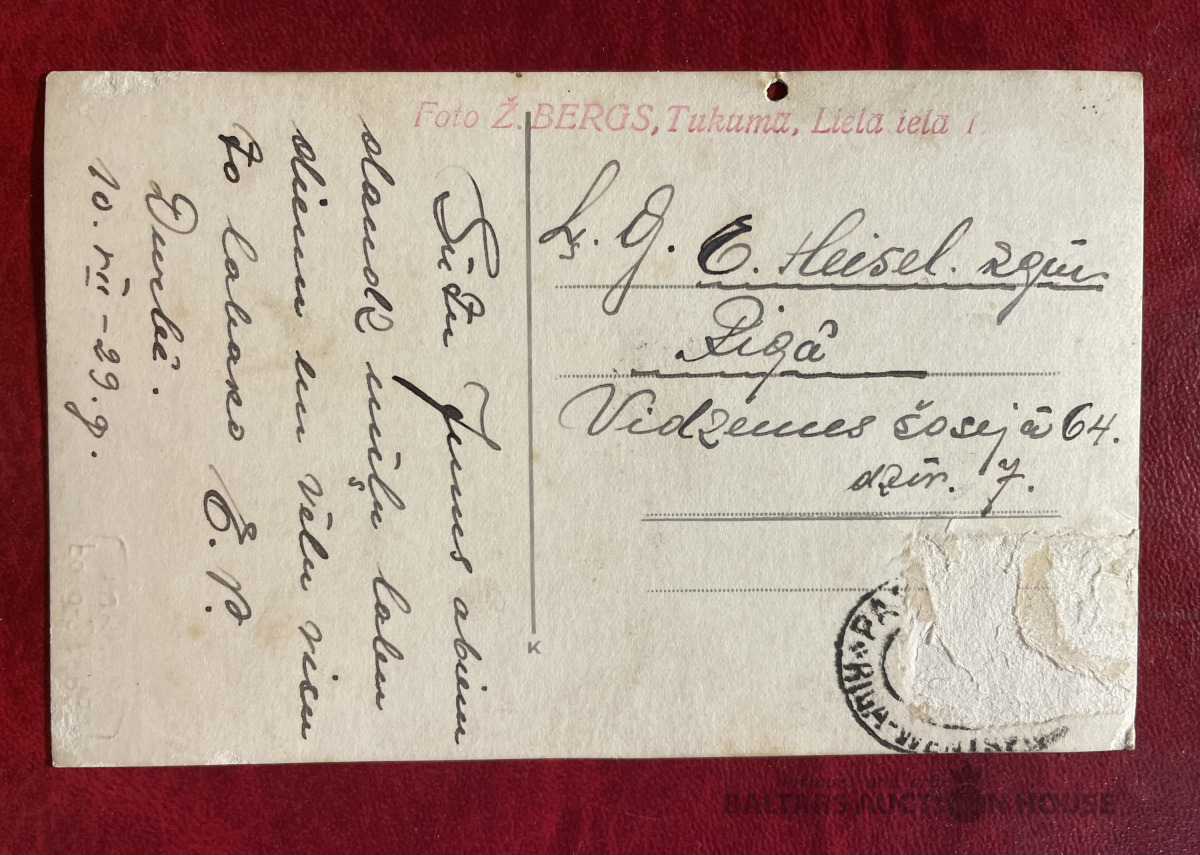 Foto Ž. BERGS, Tukumā, Lielā ielā 1
Sūtu Jums abiem
daudz mīļu labu
dienu un vēlu visu
to labako E. P.
Durbē.
10. VII - 29. g.
L. G. E. Heisel. zgūr
Rigā
Vidzemes šosejā 64.
dzīv. 7.
K
RIGA
BALTARS AUCTION HOUSE